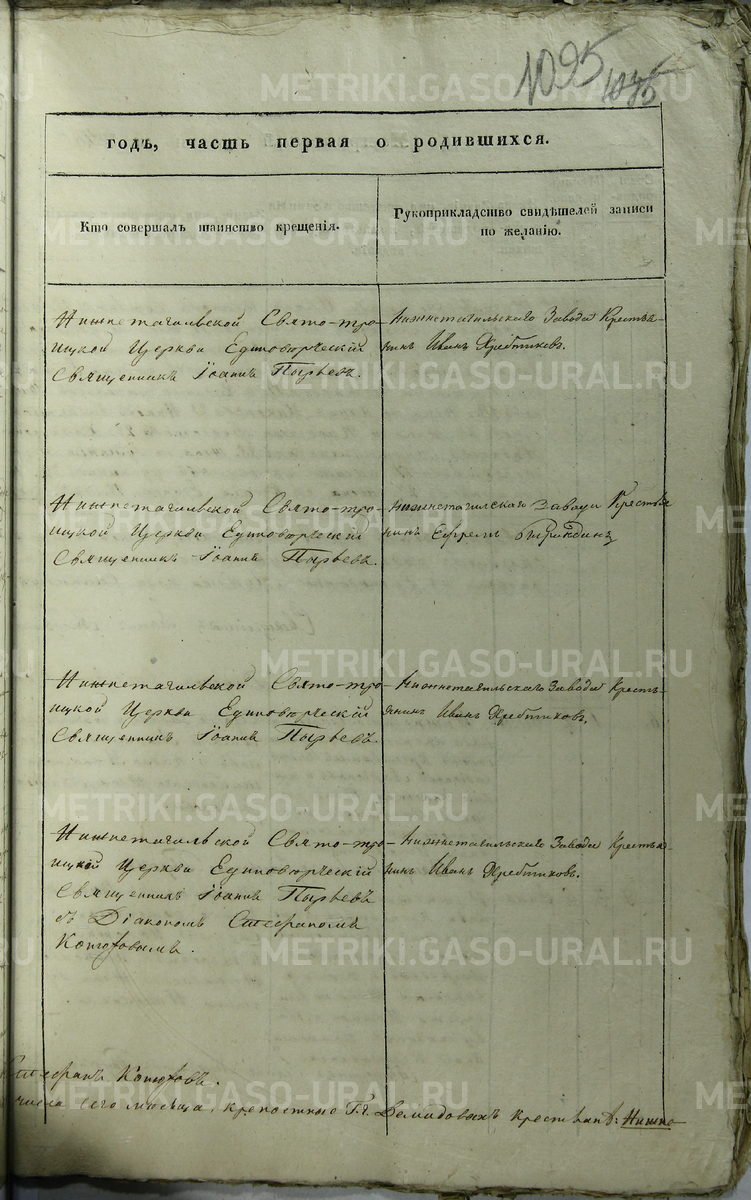 1095 1035
METRIKI.GASO-URAL.RU
годъ, часть первая о родившихся.
Кто совершалъ таинство крещенія.
Рукоприкладство свидѣтелей записи
по желанію.
Нижнетагильской Свято-тро-
ицкой Церкви Единовѣрческій
Священникъ Іоаннъ Пырьевъ.
Нижнетагильскаго Завода Крестья-
нинъ Иванъ Хребтиковъ.
Нижнетагильской Свято-тро-
ицкой Церкви Единовѣрческій
Священникъ Іоаннъ Пырьевъ.
Нижнетагильскаго Завода Крестья
нинъ Ефремъ
Нижнетагильской Свято-тро-
ицкой Церкви Единовѣрческій
Священникъ Іоаннъ Пырьевъ.
Нижнетагильскаго Завода Кресть-
янинъ Иванъ Хребтиковъ.
Нижнетагильской Свято-тро-
ицкій Церкви Единовѣрческій
Священникъ Іоаннъ Пырьевъ
съ Діакономъ Стефаномъ
Нижнетагильскаго Завода Крестья-
нинъ Иванъ Хребтиковъ.
Стефанъ
числа сего мѣсяца, крепостнаго Г.г. Демидовыхъ крестьянъ Нижне